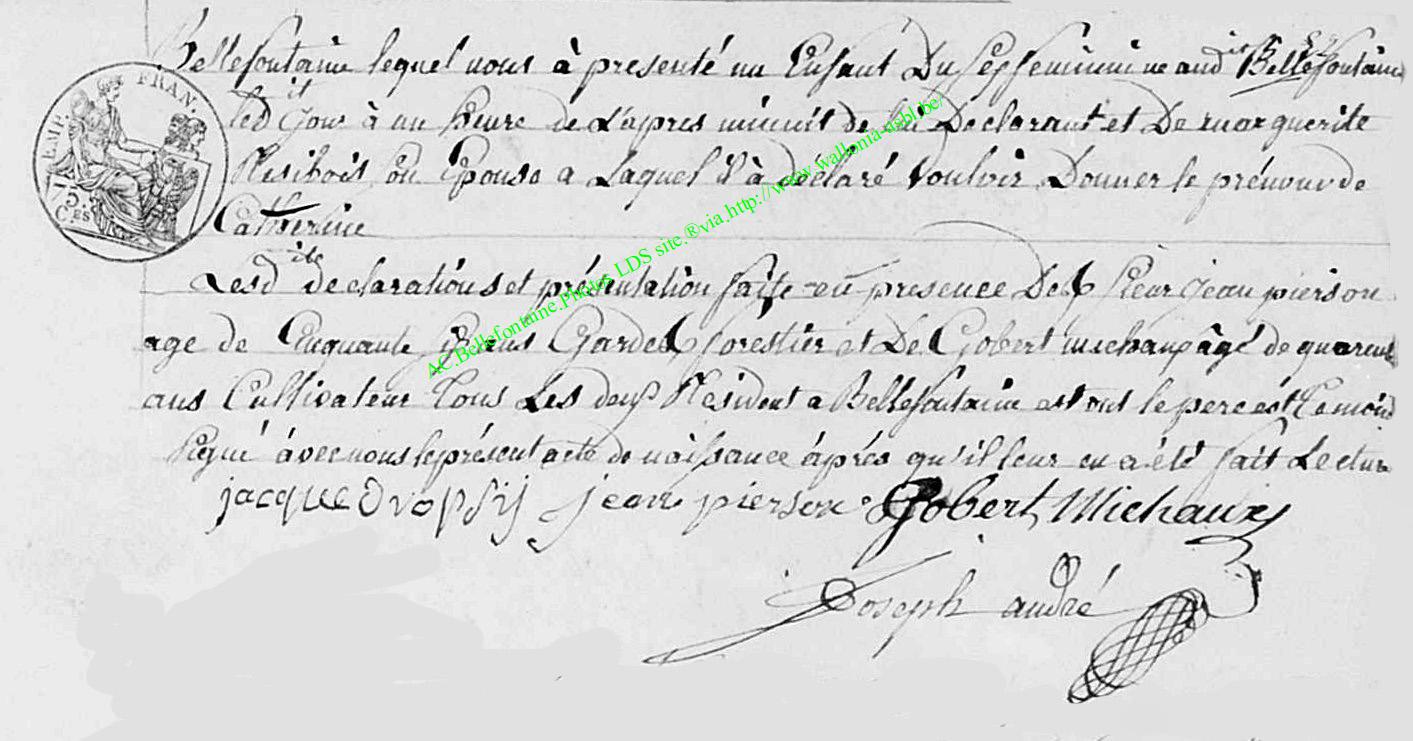 Bellefontaine lequel nous à presenté un Enfant Du Sexe feminin né aud it Bellefontaine
led it Jour à un heure de L'apres minuit de lui Declarant et De marguerite
Resibois son Epouse a Laquel il à déclaré Vouloir Donner le prénom de
Catherine
Lesd ite Declarations et présentation faite en presence De Sieur jean pierson
age de Cinquante ans Garde forestier et De Gobert michaux âgé de quarente
ans Cultivateur Tous Les deux Resident a Bellefontaine et ont le pere et Temoin
Signé avec nous le présent acte de naissance âprés qu'il leur en a été fait Lecture
jacque Dropsij jean pierson Gobert Michaux
Joseph andré
EMP. FRAN.
C.ES
AC.Bellefontaine.Photos LDS site.®via.http://www.wallonia-asbl.be/